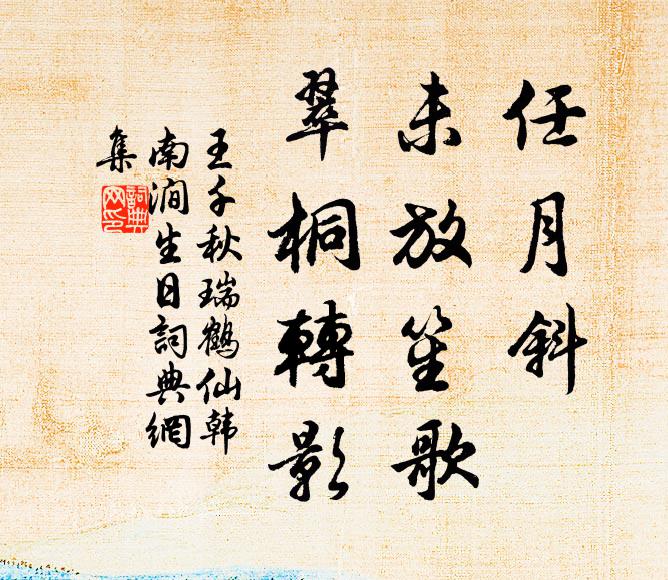 任月斜
未放笙歌
翠桐轉影
王千秋瑞鶴仙韩
南涧生日詞典網
集
詞典
网印